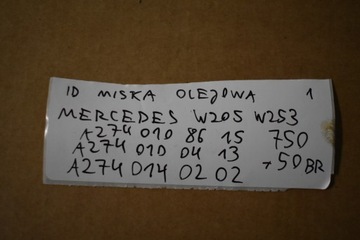 ID MISKA OLEJOWA 1
MERCEDES W205 W253
A274 010 86 15 750
A274 010 04 13 +50 BR
A274 014 02 02